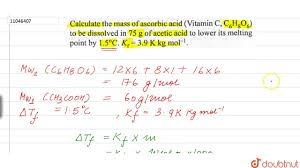 11046407
Calculate the mass of ascorbic acid (Vitamin C, C₆H₈O₆)
to be dissolved in 75 g of acetic acid to lower its melting
point by 1.5°C. Kf = 3.9 K kg mol⁻¹.
MW₂ (C6H8O6) = 12x6 + 8x1 + 16x6
= 176 g/mol
MW₁ (CH3COOH) = 60g/mol
ΔTf = 1.5°C , Kf = 3.9K Kg mol⁻¹
ΔTf = Kf x m
doubtnut